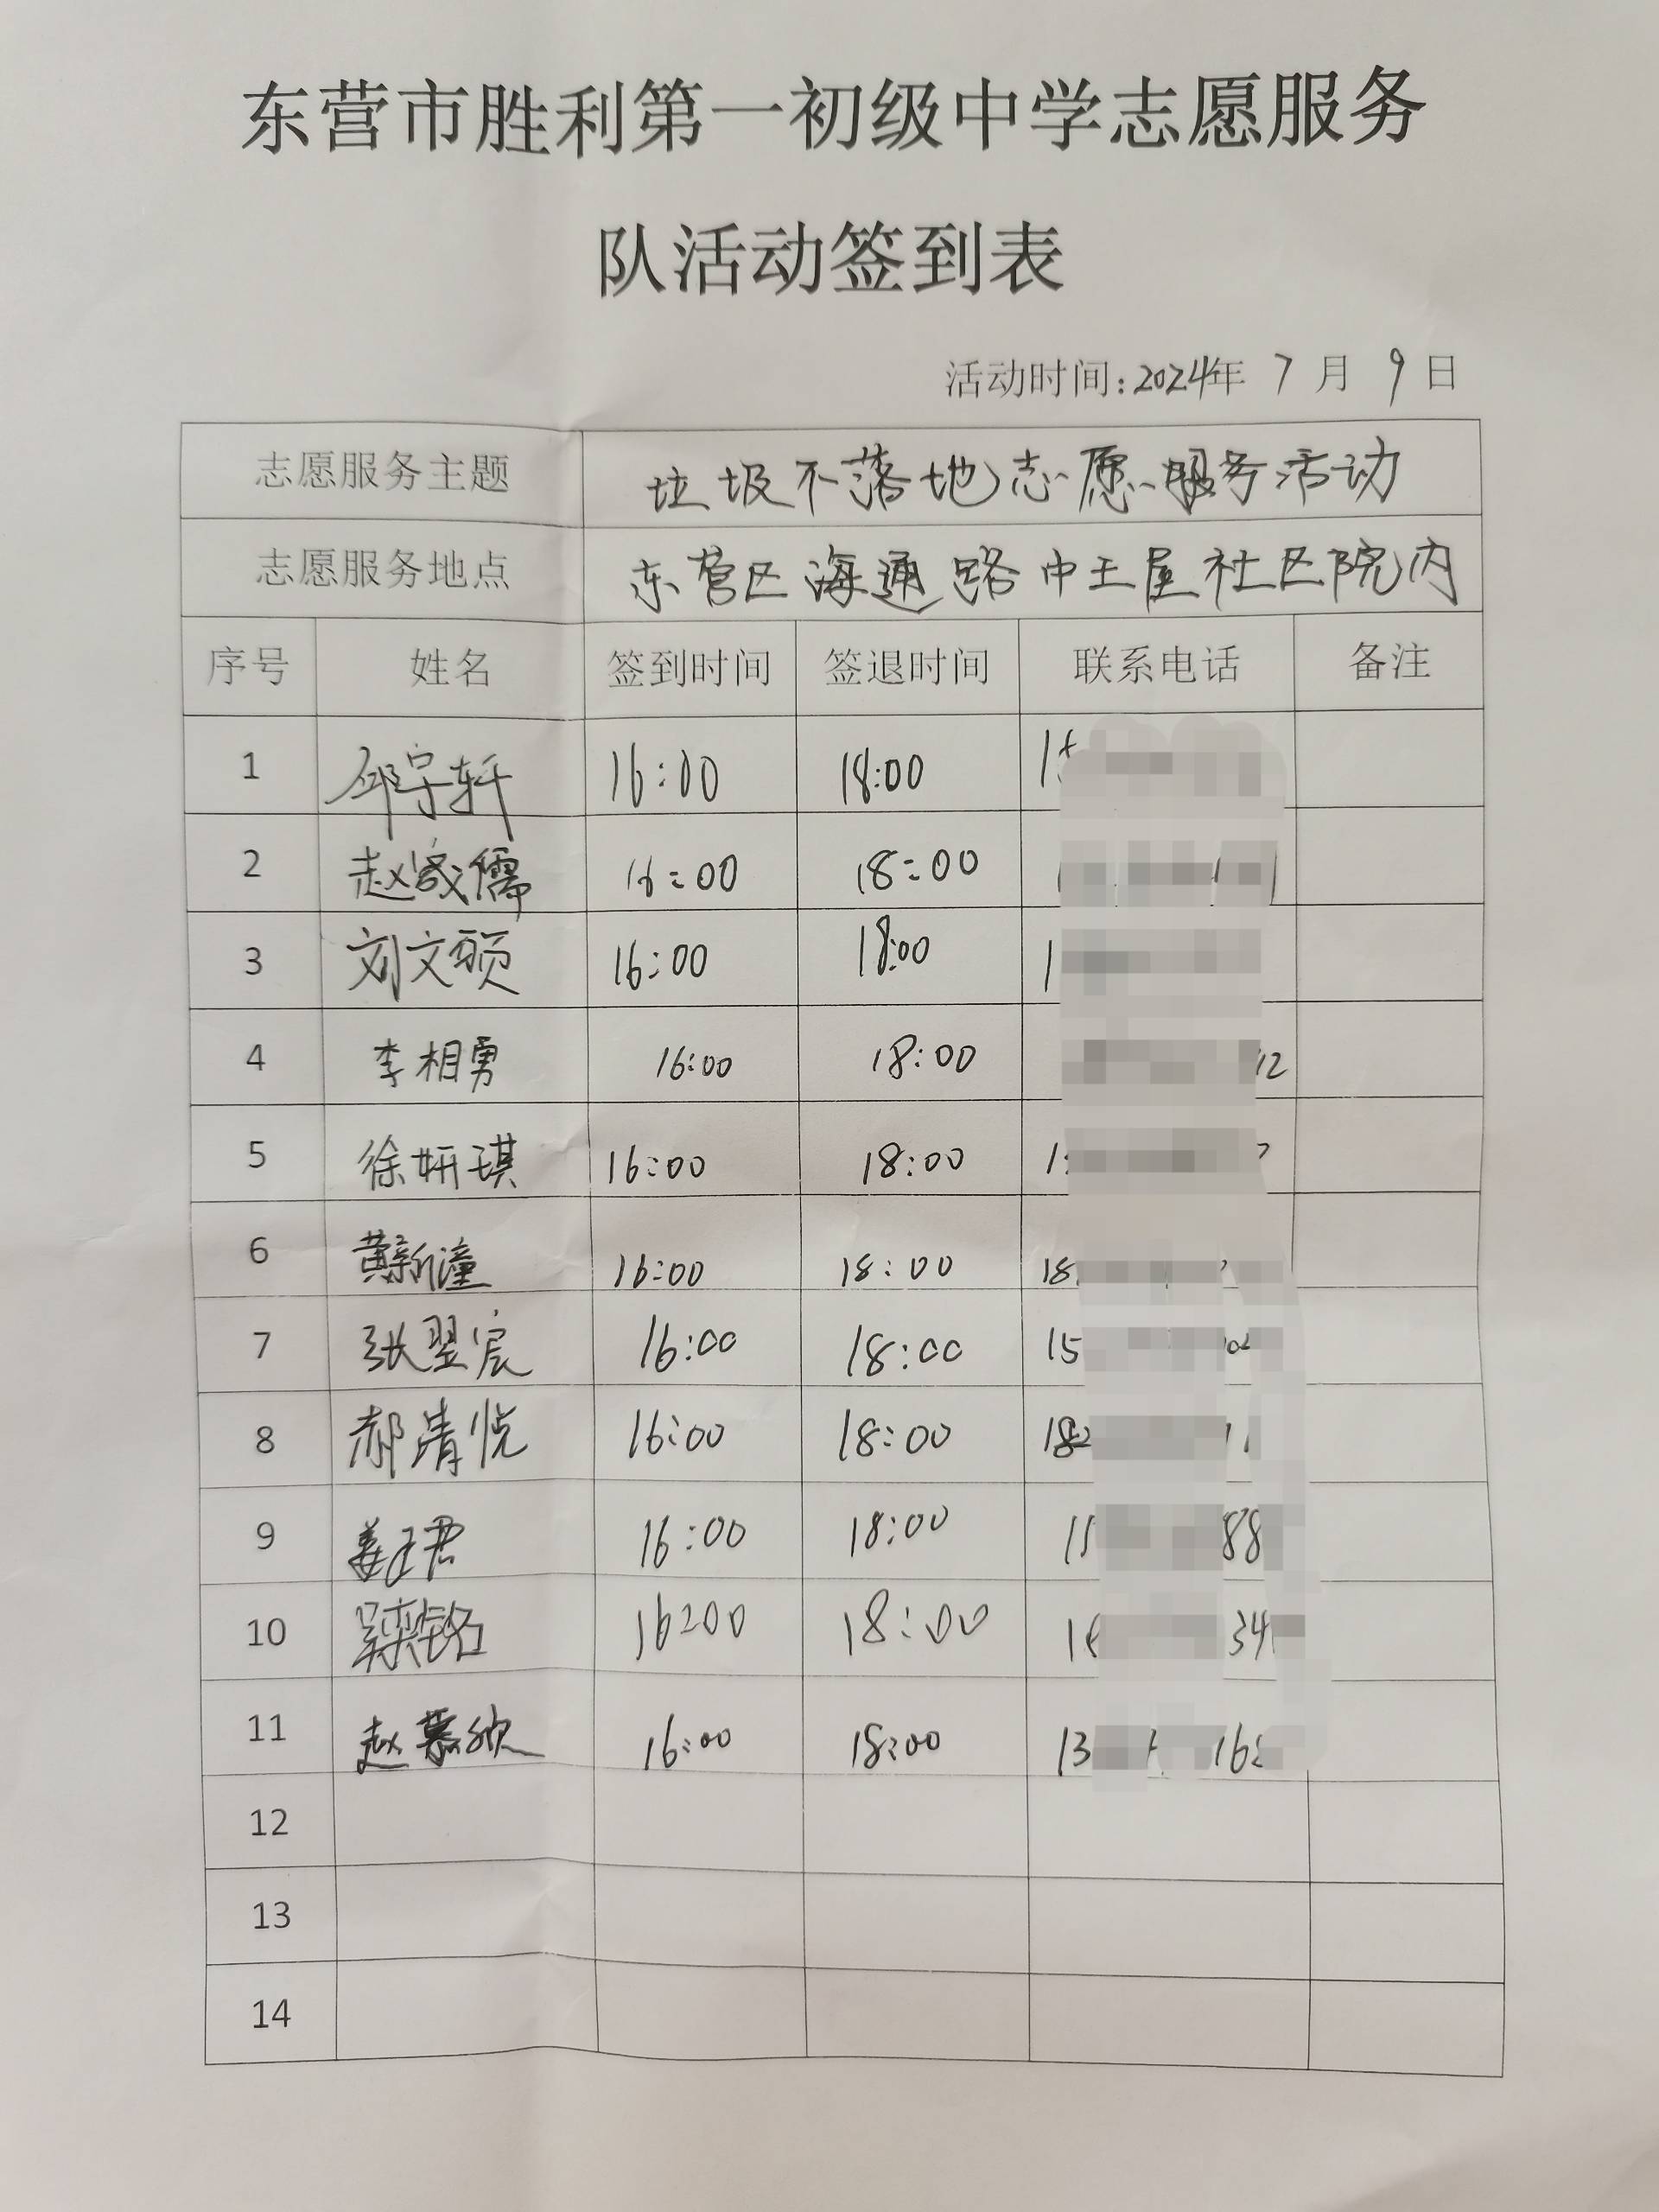 东营市胜利第一初级中学志愿服务
队活动签到表
活动时间:2024年 7 月 9 日
志愿服务主题 垃圾不落地志愿服务活动
志愿服务地点 东营区海通路中王屋社区院内
序号 姓名 签到时间 签退时间 联系电话 备注
1 邱宇轩 16:00 18:00
2 赵 儒 16:00 18:00
3 刘文硕 16:00 18:00
4 李相勇 16:00 18:00 12
5 徐妍琪 16:00 18:00
6 黄新潼 16:00 18:00 18
7 张翌宸 16:00 18:00 15
8 郝清悦 16:00 18:00 182
9 姜玉君 16:00 18:00 15 88
10 16:00 18:00 34
11 赵慕欣 16:00 18:00 13 16
12
13
14